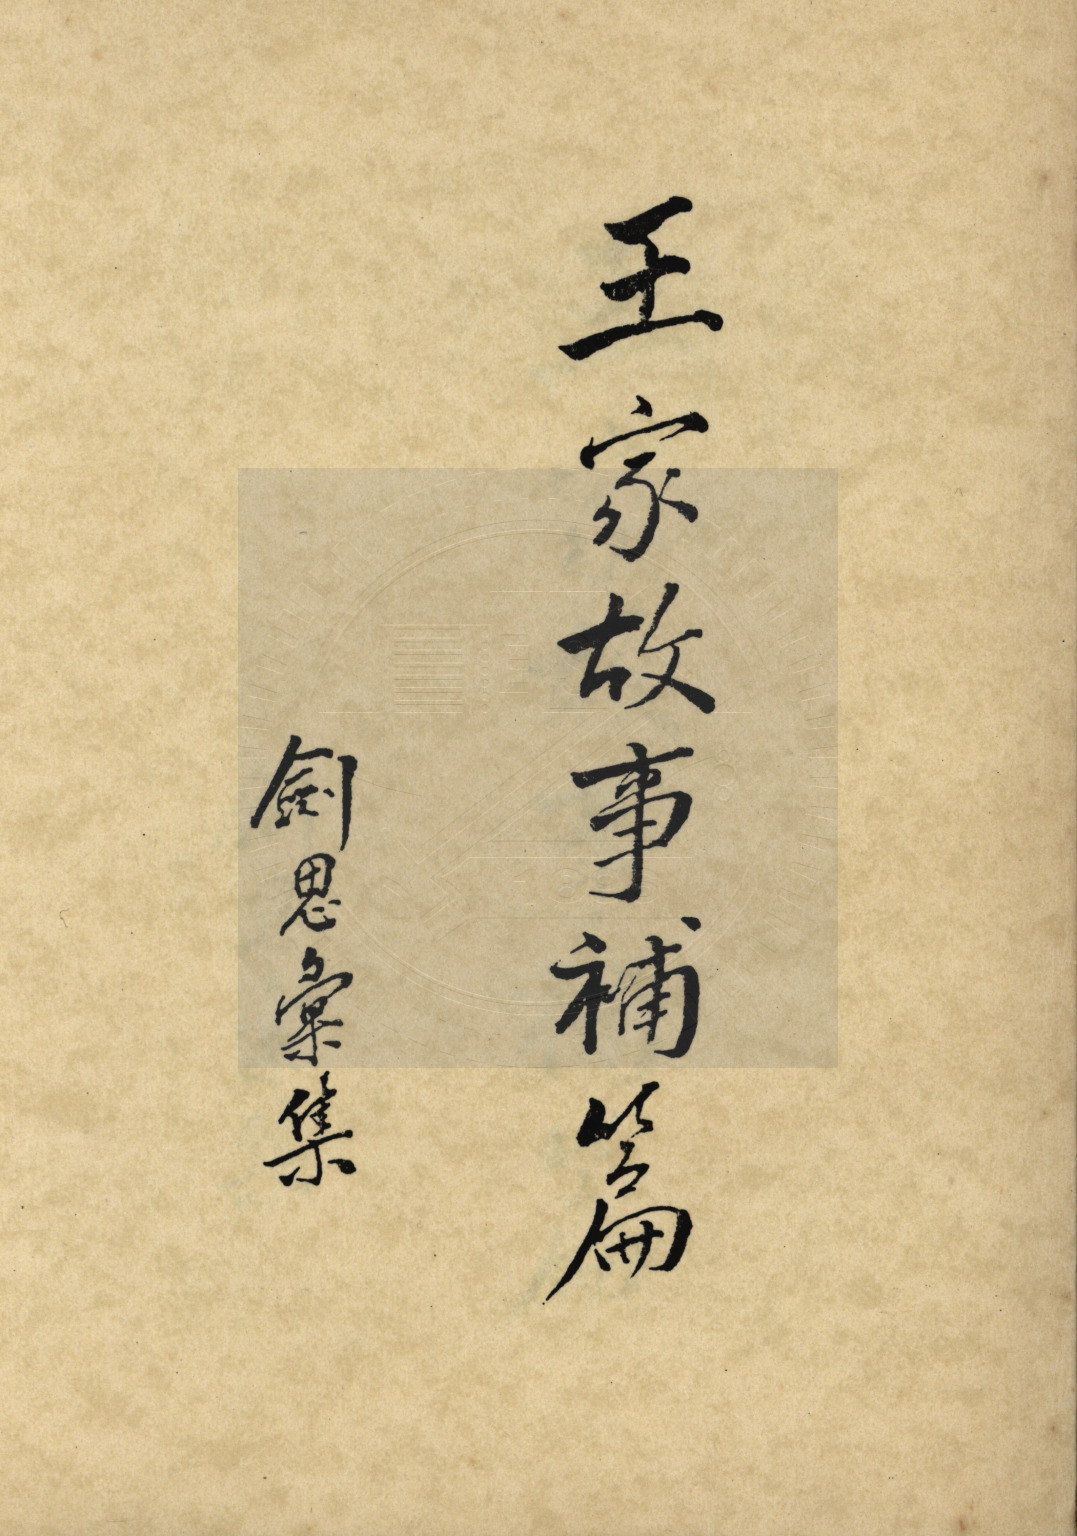 王家故事補篇
劍思彙集